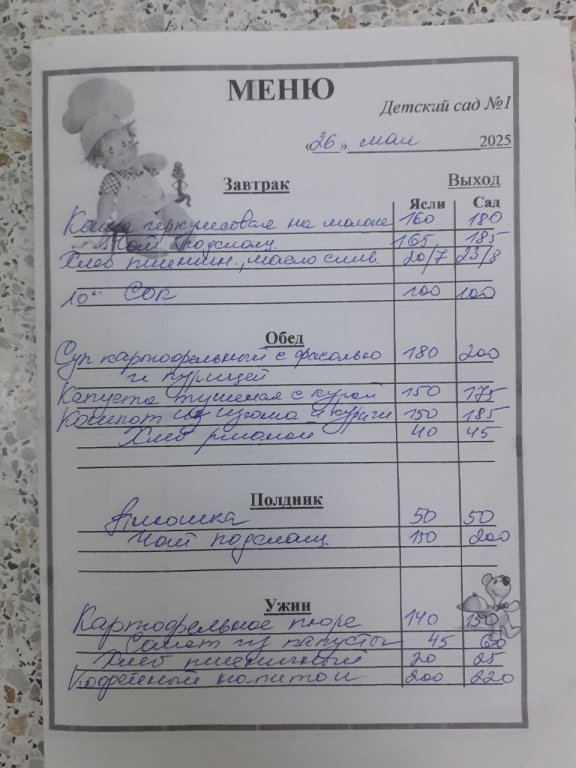 МЕНЮ
Детский сад №1
«26» мая 2025
Завтрак Выход
Ясли Сад
Каша геркулесовая на молоке 160 180
Чай подслащ 165 185
Хлеб пшеничн., масло слив. 20/7 23/8
10°° Сок 100 100
Обед
Суп картофельный с фасолью 180 200
и курицей
Капуста тушеная с курой 150 175
Компот из изюма и кураги 150 185
Хлеб ржаной 40 45
Полдник
50 50
Чай подслащ 150 200
Ужин
Картофельное пюре 140 150
Салат из капусты 45 60
Хлеб пшеничный 20 25
Кофейный напиток 200 220